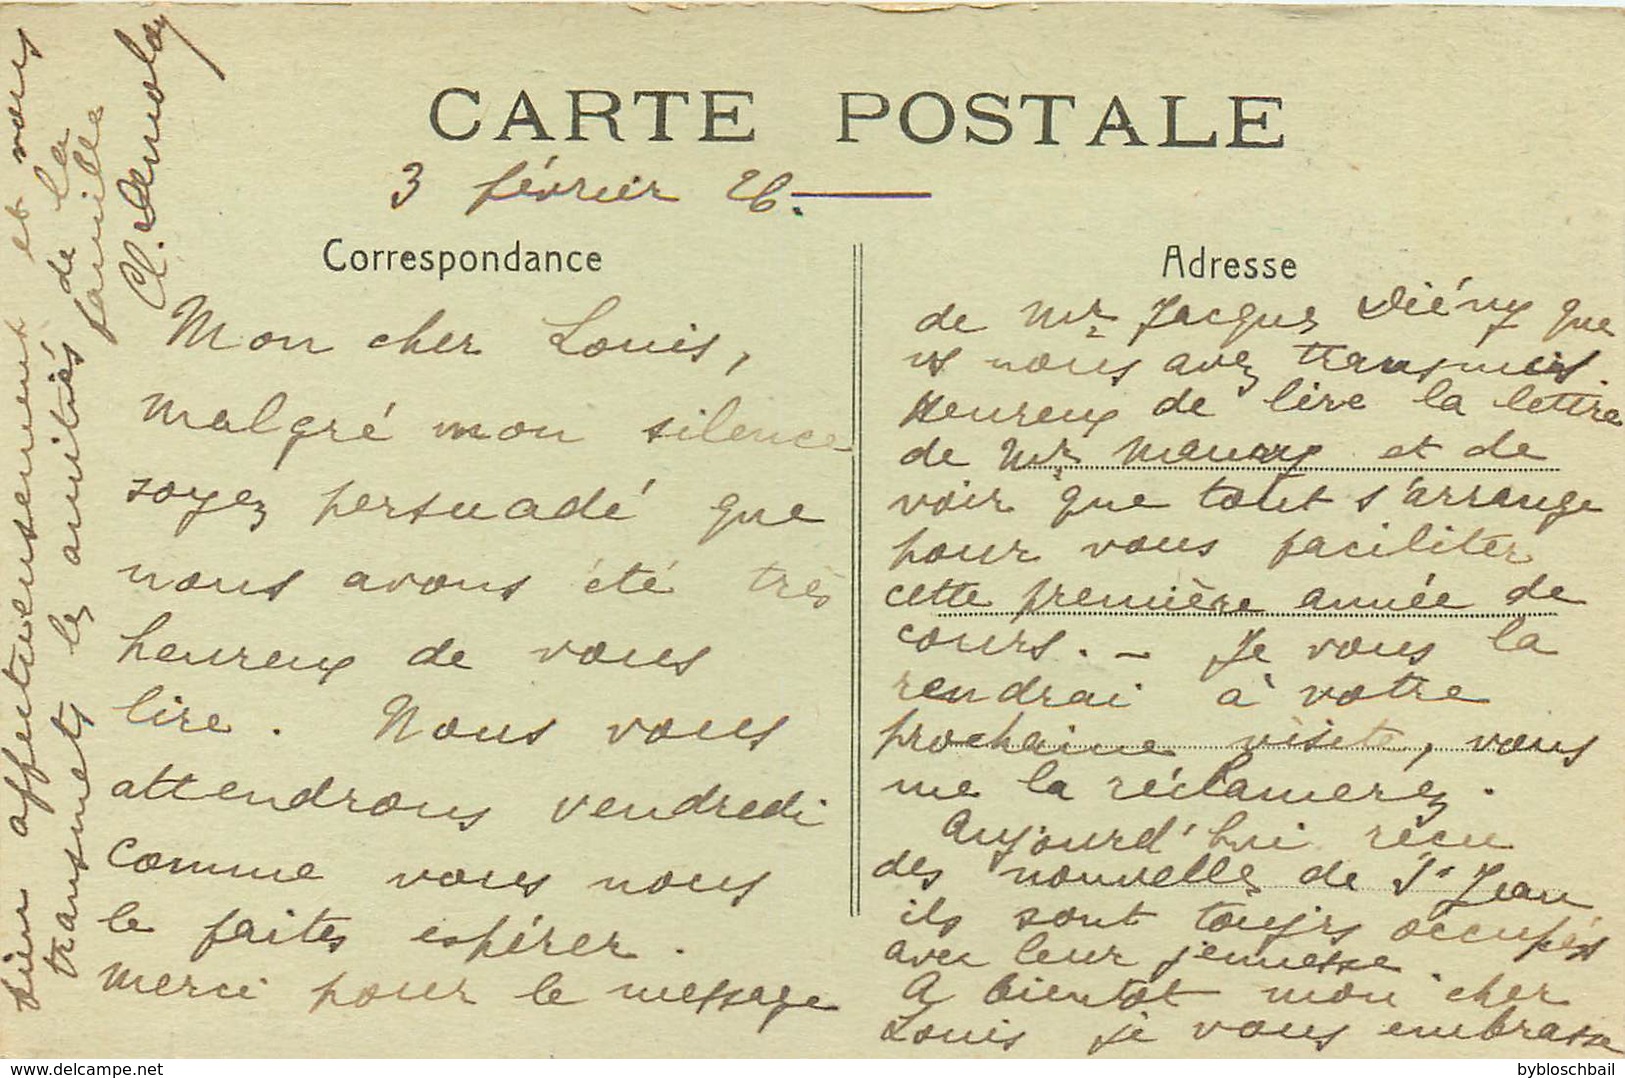 CARTE POSTALE
3 février 26.
Correspondance
Mon cher Louis,
malgré mon silence
soyez persuadé que
nous avons été très
heureux de vous
lire. Nous vous
attendrons vendredi
comme vous nous
le faites espérer.
Merci pour le message
Adresse
de Mr Jacques Diény que
vs nous avez transmis.
Heureux de lire la lettre
de Mr Maury et de
voir que tout s'arrange
pour vous faciliter
cette première année de
cours. - Je vous la
rendrai à votre
prochaine visite, vous
me la réclamerez.
Aujourd'hui reçu
des nouvelles de St Jean
ils sont toujrs occupés
avec leur jeunesse.
A bientôt mon cher
Louis je vous embrasse
bien affectueusement et vous
transmets les amitiés de la
famille
Cl.
bybloschbail
delcampe.net